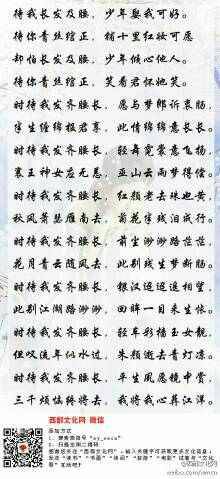 待我长发及腰，少年娶我可好。
待你青丝绾正，铺十里红妆可愿
却怕长发及腰，少年倾心他人。
待你青丝绾正，笑看君怀她笑。
时待我发齐腰长，愿与梦郎诉衷肠，
半生缠绵棋君享，此情绵绵意长长。
时待我发齐腰长，轻舞霓裳意飞扬，
襄王神女应无恙，巫山云雨梦得偿。
时待我发齐腰长，红颜老去珠也黄，
秋风萧瑟雁南去，菊花字残泪成行。
时待我发齐腰长，前尘渺渺路茫茫，
花月青云随风去，此别残生梦断肠。
时待我发齐腰长，银汉迢迢遥相望，
此别江湖路渺渺，回眸一目朱生怅。
时待我发齐腰长，轻车彩描玉女靓，
但叹流年似水过，朱颜逝去青灯凉。
时待我发齐腰长，平生凤愿镜中赏，
三千烦恼将将去，我将我心葬江洋。
西部文化网 微信
添加方式
1、搜索微信号
2、扫描左侧二维码